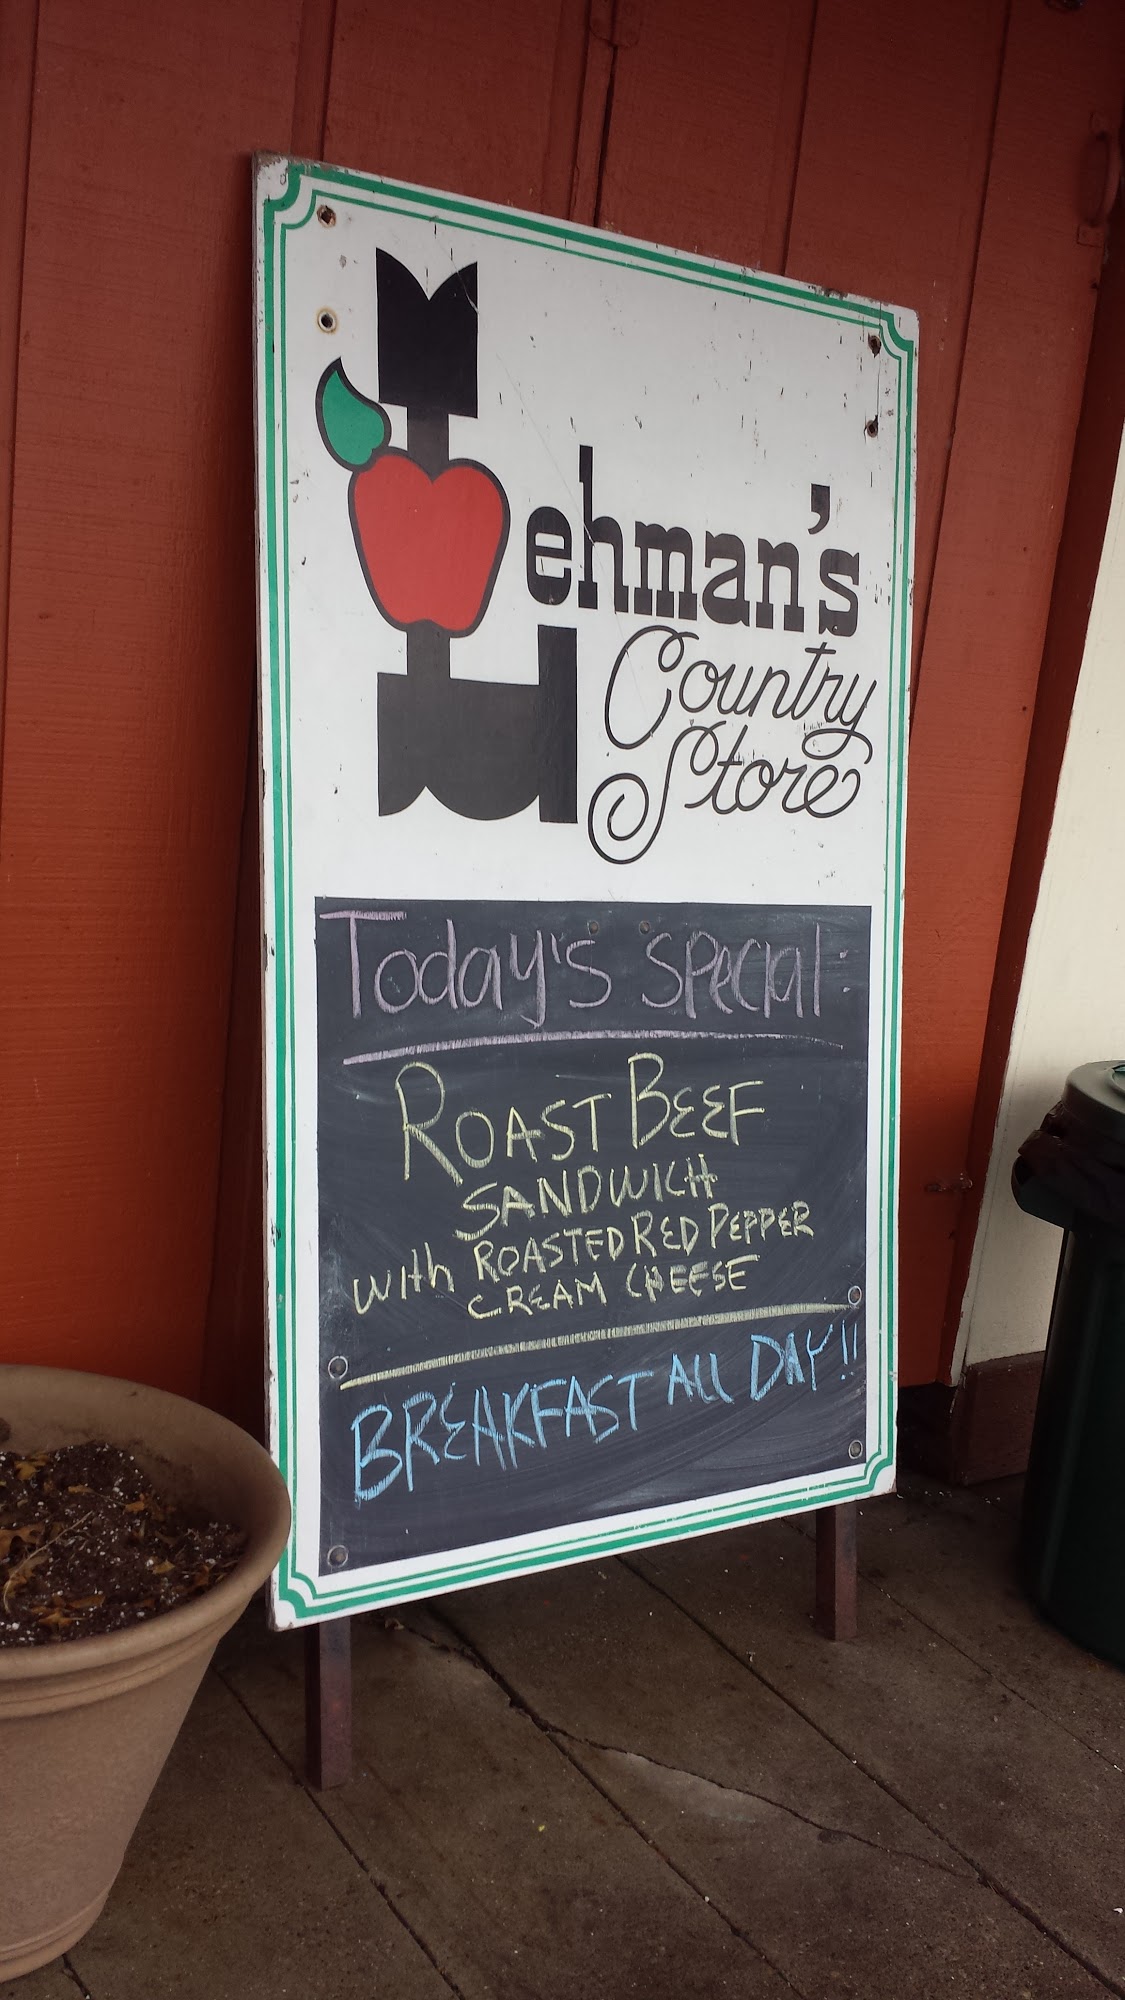 Lehman's
Country
Store
Today's Special:
ROAST BEEF
SANDWICH
with ROASTED RED PEPPER
CREAM CHEESE
BREAKFAST ALL DAY!!